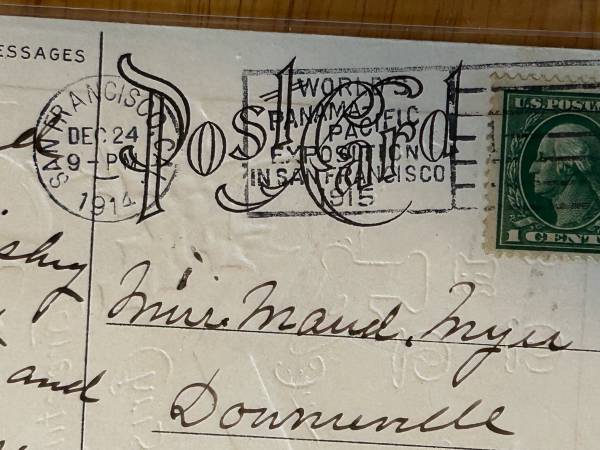 ESSAGES
Post Card
SAN FRANCISCO, CAL.
DEC 24
9 - PM
1914
WORLD'S
PANAMA-
PACIFIC
EXPOSITION
IN SAN FRANCISCO
1915
U.S. POSTA
1 CENT
Miss. Maud. Myer
and
Downieville